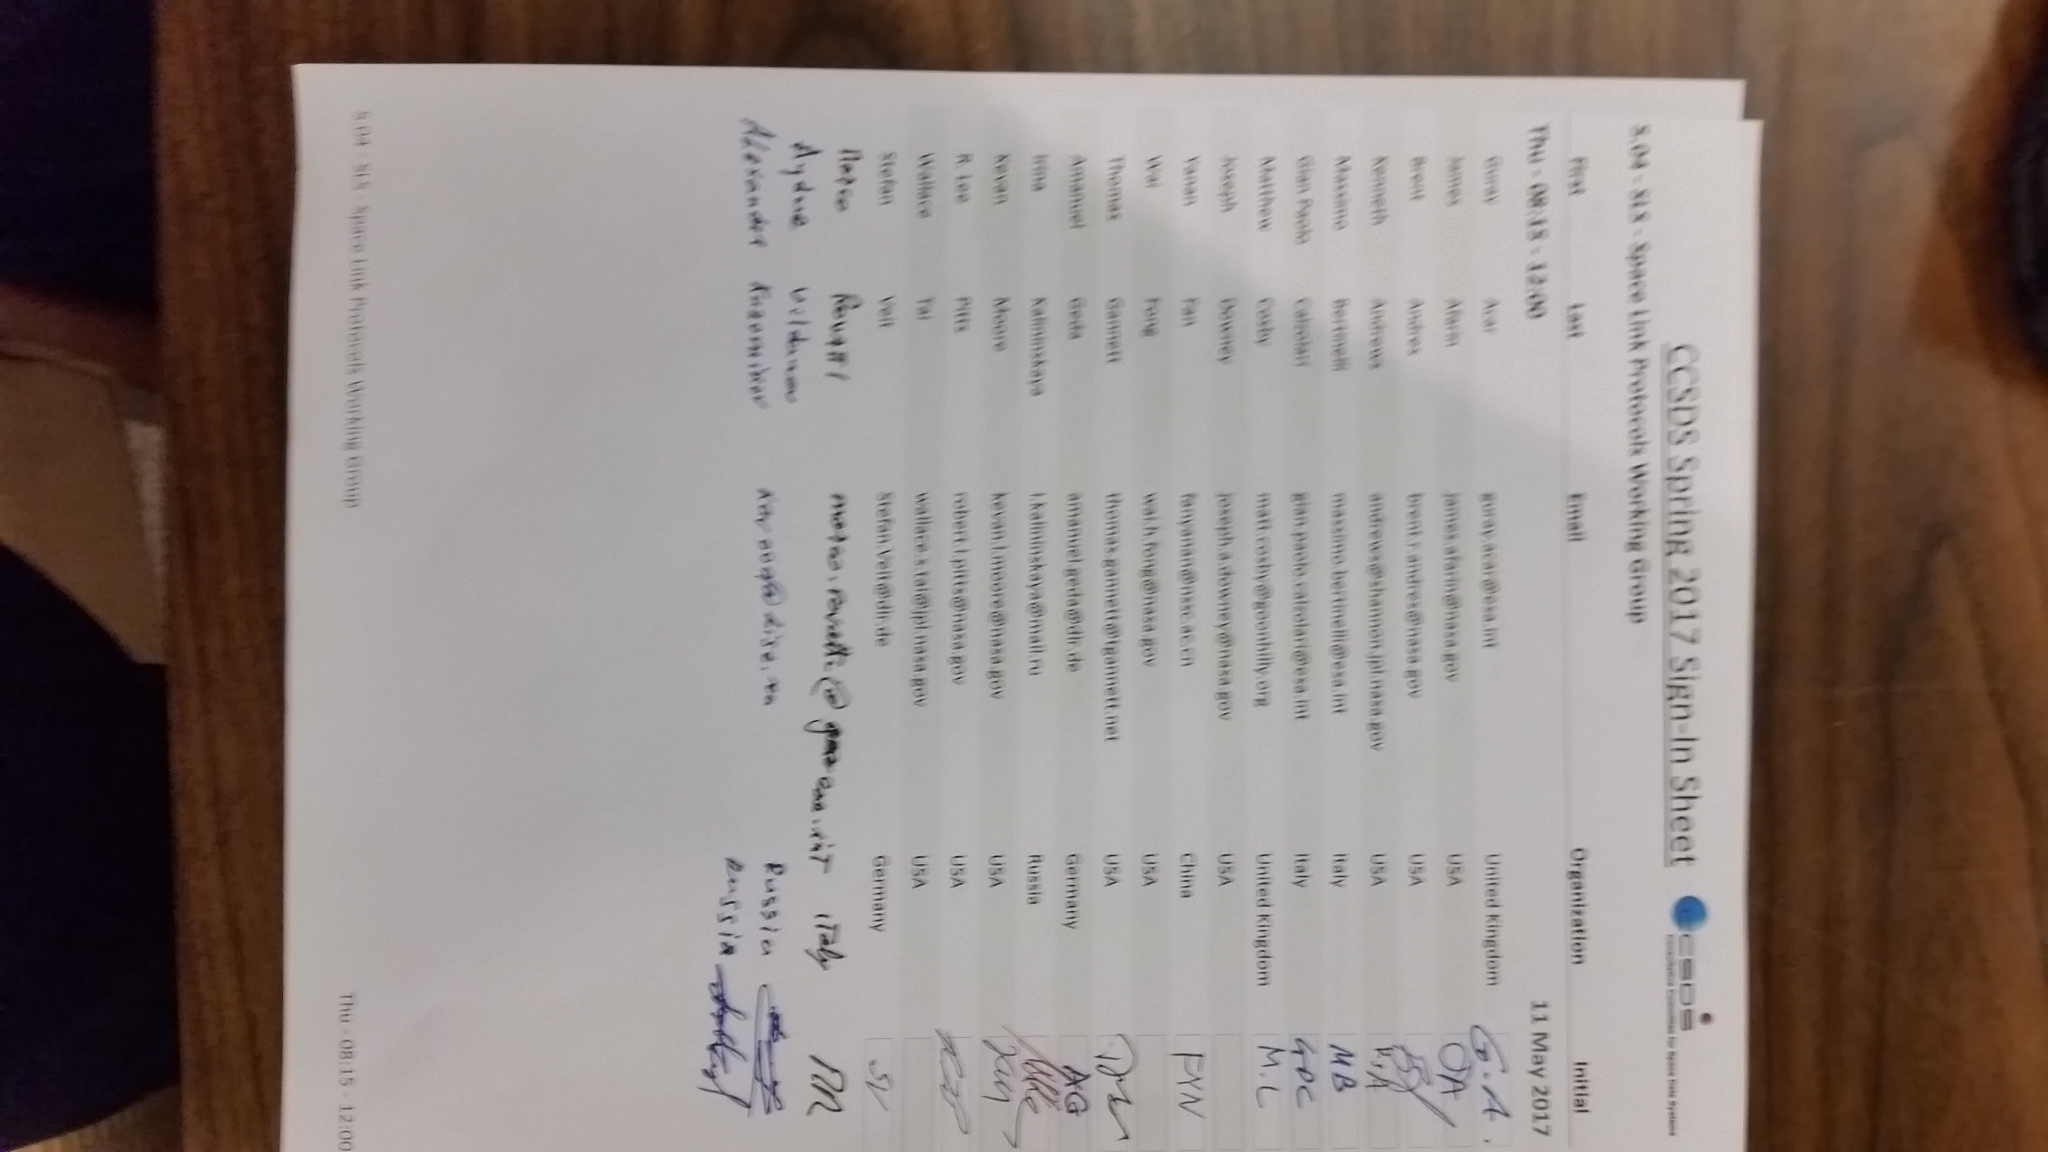 CCSDS Spring 2017 Sign-In Sheet
5.04 - SLS - Space Link Protocols Working Group
Thu - 08:15 - 12:00 11 May 2017
First Last Email Organization Initial
Goray Acar goray.acar@esa.int United Kingdom G.A.
James Afarin james.afarin@nasa.gov USA
Brent Andres brent.r.andres@nasa.gov USA
Kenneth Andrews andrews@shannon.jpl.nasa.gov USA
Massimo Bertinelli massimo.bertinelli@esa.int Italy MB
Gian Paolo Calzolari gian.paolo.calzolari@esa.int Italy GPC
Matthew Cosby matt.cosby@goonhilly.org United Kingdom M.C
Joseph Downey joseph.a.downey@nasa.gov USA
Yanan Fan fanyanan@nssc.ac.cn China FYN
Wai Fong wai.h.fong@nasa.gov USA
Thomas Gannett thomas.gannett@tgannett.net USA
Amanuel Geda amanuel.geda@dlr.de Germany AG
Irina Kalininskaya i.kalininskaya@mail.ru Russia
Kevan Moore kevan.l.moore@nasa.gov USA
R. Lee Pitts robert.l.pitts@nasa.gov USA
Wallace Tai wallace.s.tai@jpl.nasa.gov USA
Stefan Veit Stefan.Veit@dlr.de Germany
italy
Russia
Alexander Russia
5.04 - SLS - Space Link Protocols Working Group Thu - 08:15 - 12:00